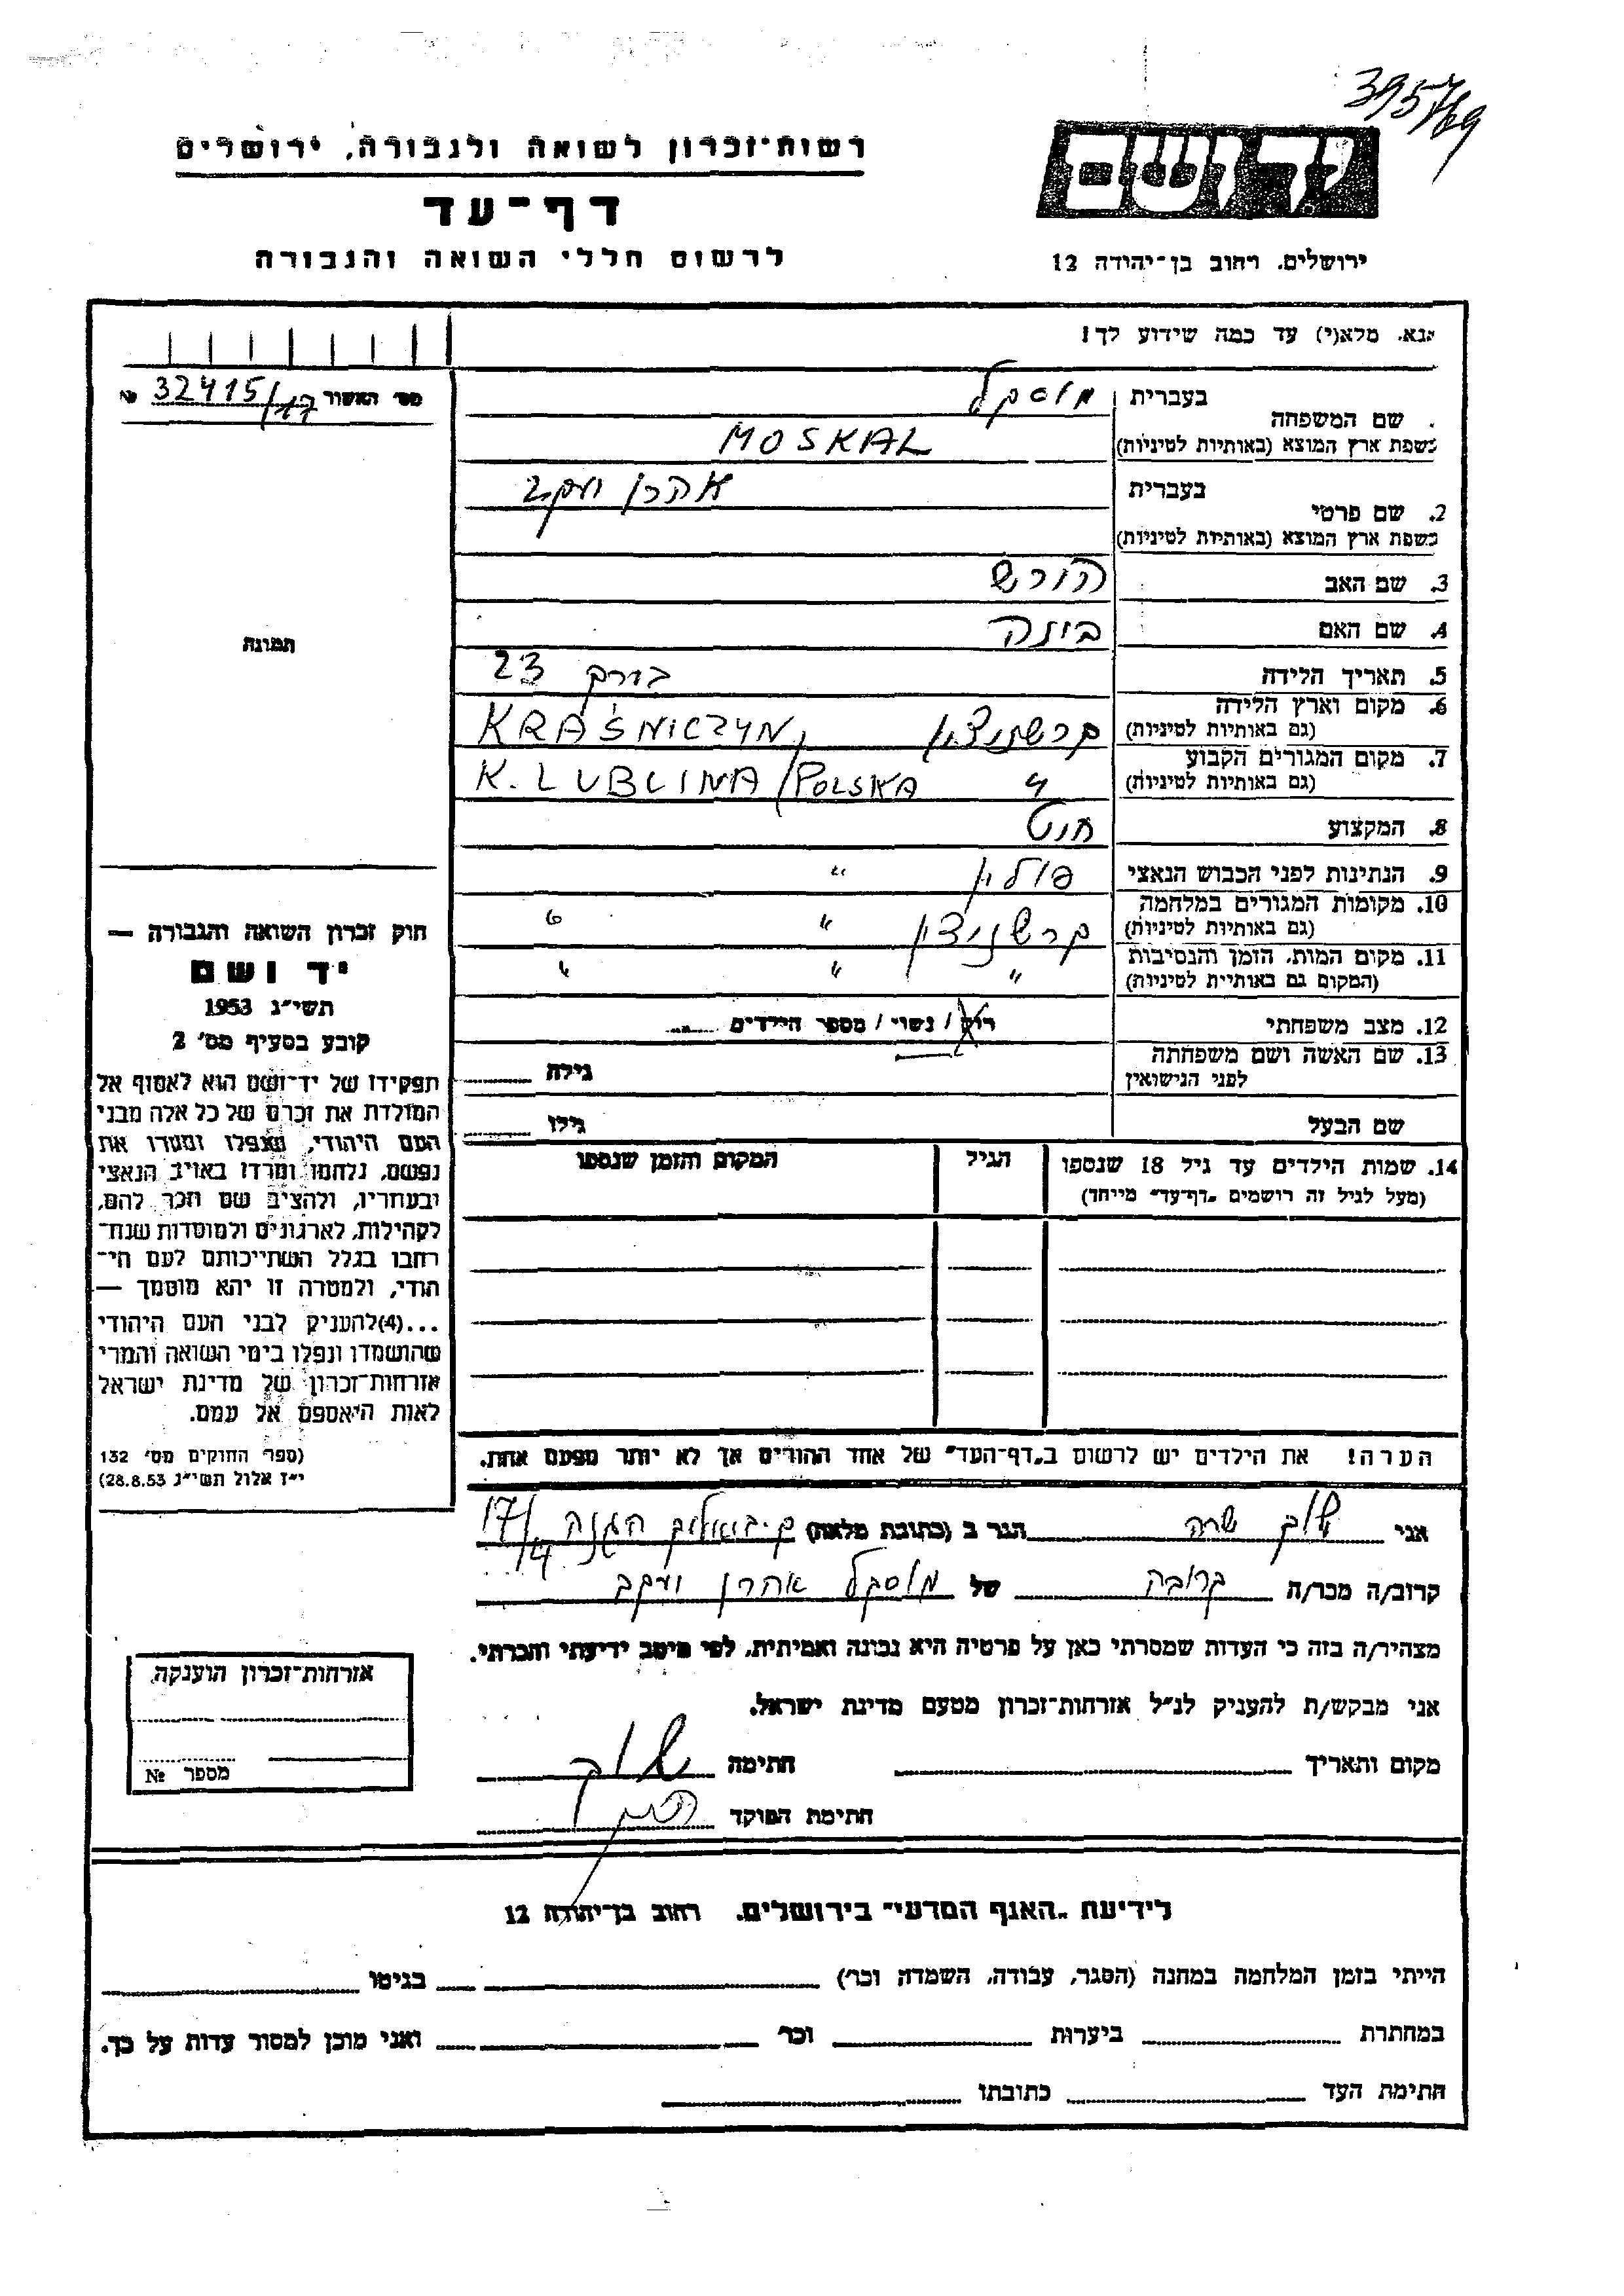 395769
רשות-זכרון לשואה ולגבורה, ירושלים
דף-עד
לרשום חללי השואה והגבורה
ירושלים, רחוב בן-יהודה 12
אנא, מלא(י) עד כמה שידוע לך!
מס' האשור 32415/17 №
תמונה
שם המשפחה
בעברית מוסקל
בשפת ארץ המוצא (באותיות לטיניות) MOSKAL
2. שם פרטי
בעברית אהרן יעקב
בשפת ארץ המוצא (באותיות לטיניות)
3. שם האב הורש
4. שם האם בינה
5. תאריך הלידה בערך 23
6. מקום וארץ הלידה קרשניצין KRAŚNICZYN,
(גם באותיות לטיניות)
7. מקום המגורים הקבוע " K. LUBLINA/POLSKA
(גם באותיות לטיניות)
8. המקצוע חיט
9. הנתינות לפני הכבוש הנאצי פולין "
10. מקומות המגורים במלחמה קרשניצין " "
(גם באותיות לטיניות)
11. מקום המות, הזמן והנסיבות " " "
(המקום גם באותיות לטיניות)
12. מצב משפחתי רווק / נשוי / מספר הילדים
13. שם האשה ושם משפחתה גילה
לפני הנישואין
שם הבעל גילו
14. שמות הילדים עד גיל 18 שנספו הגיל המקום והזמן שנספו
(מעל לגיל זה רושמים "דף-עד" מייחד)
הערה! את הילדים יש לרשום ב"דף-העד" של אחד ההורים אך לא יותר מפעם אחת.
חוק זכרון השואה והגבורה —
יד ושם
תשי"ג 1953
קובע בסעיף מס' 2
תפקידו של יד-ושם הוא לאסוף אל
המולדת את זכרם של כל אלה מבני
העם היהודי, שנפלו ומסרו את
נפשם, נלחמו ומרדו באויב הנאצי
ובעוזריו, ולהציב שם וזכר להם,
לקהילות, לארגונים ולמוסדות שנח-
רבו בגלל השתייכותם לעם הי-
הודי, ולמטרה זו יהא מוסמך —
...(4)להעניק לבני העם היהודי
שהושמדו ונפלו בימי השואה והמרי
אזרחות-זכרון של מדינת ישראל
לאות היאספם אל עמם.
(ספר החוקים מס' 132
י"ז אלול תשי"ג 28.8.53)
אני שרה הגר ב (כתובת מלאה) ק. ביאליק הגנה 17/4
קרוב/ה מכר/ה קרובה של מוסקל אהרן יעקב
מצהיר/ה בזה כי העדות שמסרתי כאן על פרטיה היא נכונה ואמיתית, לפי מיטב ידיעתי והכרתי.
אני מבקש/ת להעניק לנ"ל אזרחות-זכרון מטעם מדינת ישראל.
מקום ותאריך חתימה
חתימת הפוקד
אזרחות-זכרון הוענקה,
מספר №
לידיעת "האגף המדעי" בירושלים, רחוב בן-יהודה 12
הייתי בזמן המלחמה במחנה (הסגר, עבודה, השמדה וכו') בגיטו
במחתרת ביערות וכו' ואני מוכן למסור עדות על כך.
חתימת העד כתובתו